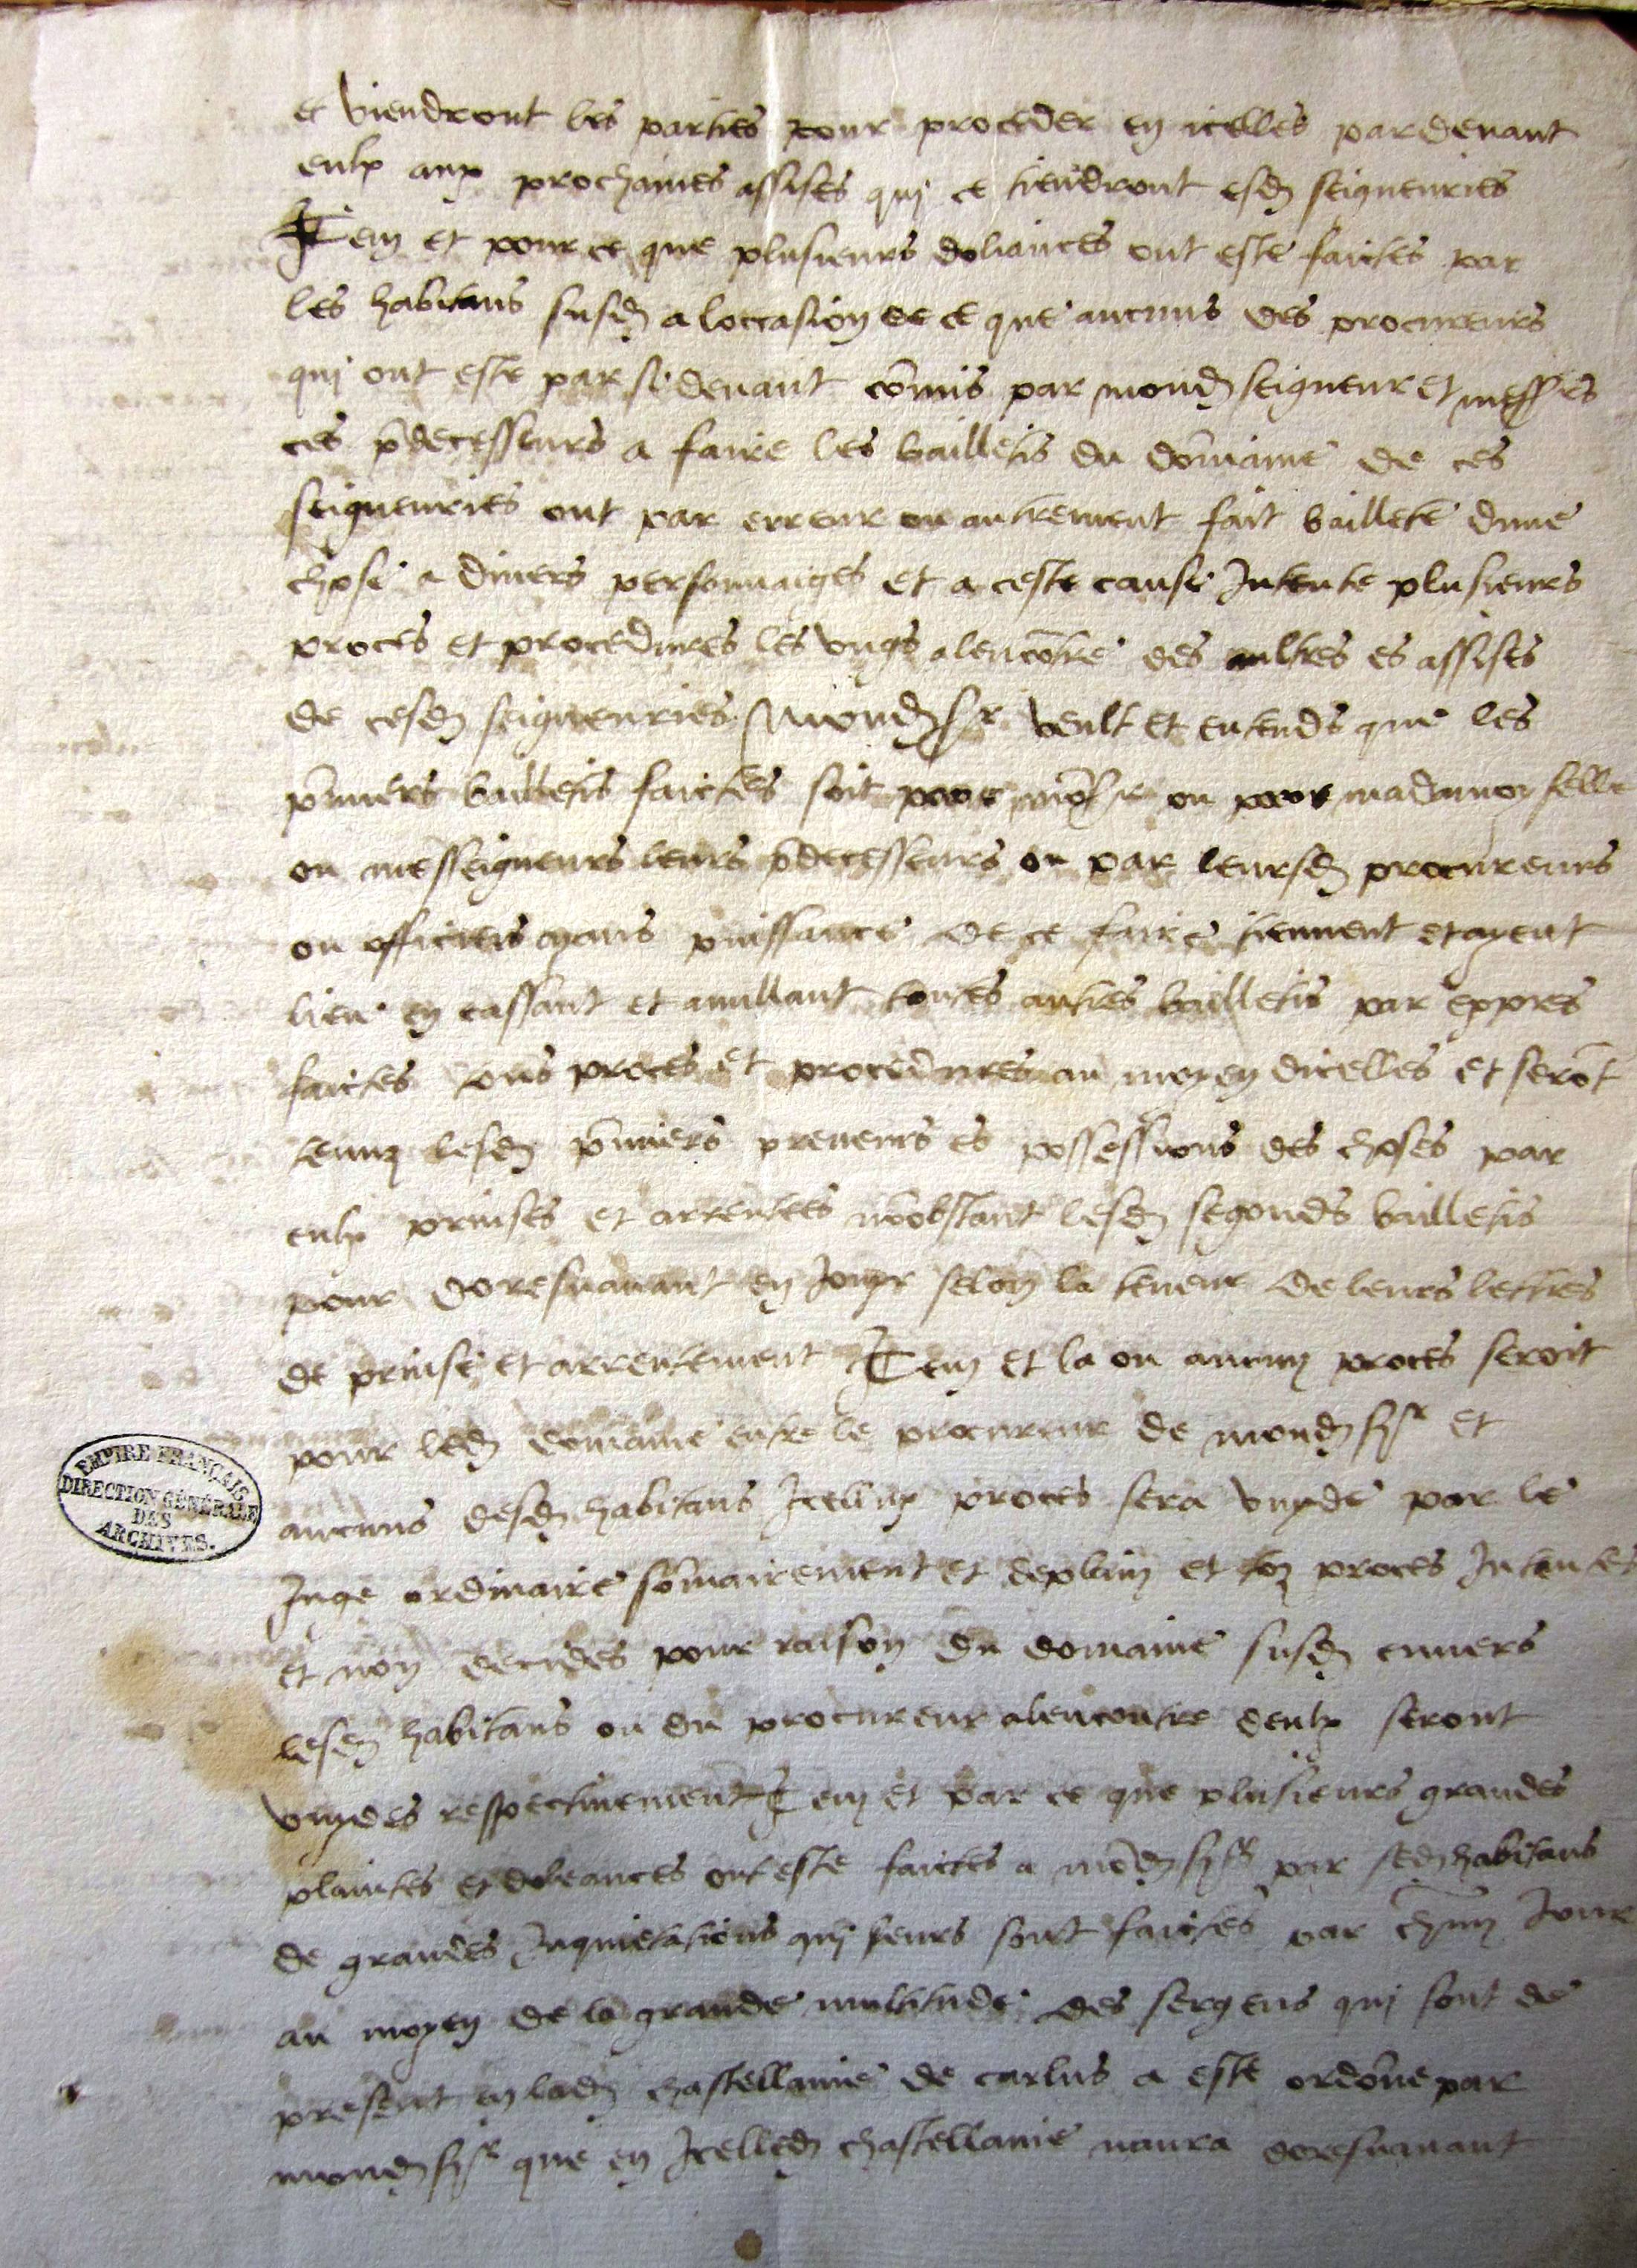 et viendront les parties pour proceder en icelles pardevant
eulx aux prochaines assises qui ce tiendront esd seigneuries
Item et pource que plusieurs doliances ont este faictes par
les habitans susd a loccasion de ce que aucuns des procureurs
qui ont este par si devant cõmis par mond seigneur et messrs
ces p̃decesseurs a faire les bailletis du dõmaine de ces
seigneuries ont par erreur ou autrement fait bailletes dune
chose a divers personnaiges et a ceste cause Intente plusieurs
proces et procedures les vngs alencõtre des aultres es assises
de cesd seigneuries Mond sr veult et entends que les
p̃miers bailletis faictes soit pour mõsr ou pour madamoyselle
ou messeigneurs leurs p̃decesseurs ou par leursd procureurs
ou officiers ayans puissance de ce faire tiennent et ayent
lieu en cassant et anullant toutes autres bailletis par eppres
faictes tous proces et procedures au moyen dicelles et serõt
tenuz lesd p̃miers preneurs es possessions des choses par
eulx prinses et arrentees nõobstant lesd segonds bailletis
pour doresnavant en Jouyr selon la teneur de leurs lettres
de prinse et arrentement Item et la ou aucun proces seroit
pour led domaine entre le procureur de mond sgr et
aucuns desd habitans Icelluy proces sera vuyde par le
Juge ordinaire sõmairement et deplain et proces Intentes
et non decides pour raison du domaine susd envers
lesd habitans ou du procureur alencontre deulx seront
vuydes respectivement Item et par ce que plusieurs grandes
plaintes et doleances ont este faictes a mõd sgr par sesd habitans
de grandes Inquietacions qui leurs sont faictes par chũn Jour
au moyen de la grande multitude des sergens qui sont de
present en lad chastellanie de carlus a este ordõne par
mond sgr que en Icelled chastellanie naura doresnavant
EMPIRE FRANÇAIS
DIRECTION GÉNÉRALE
DES
ARCHIVES.